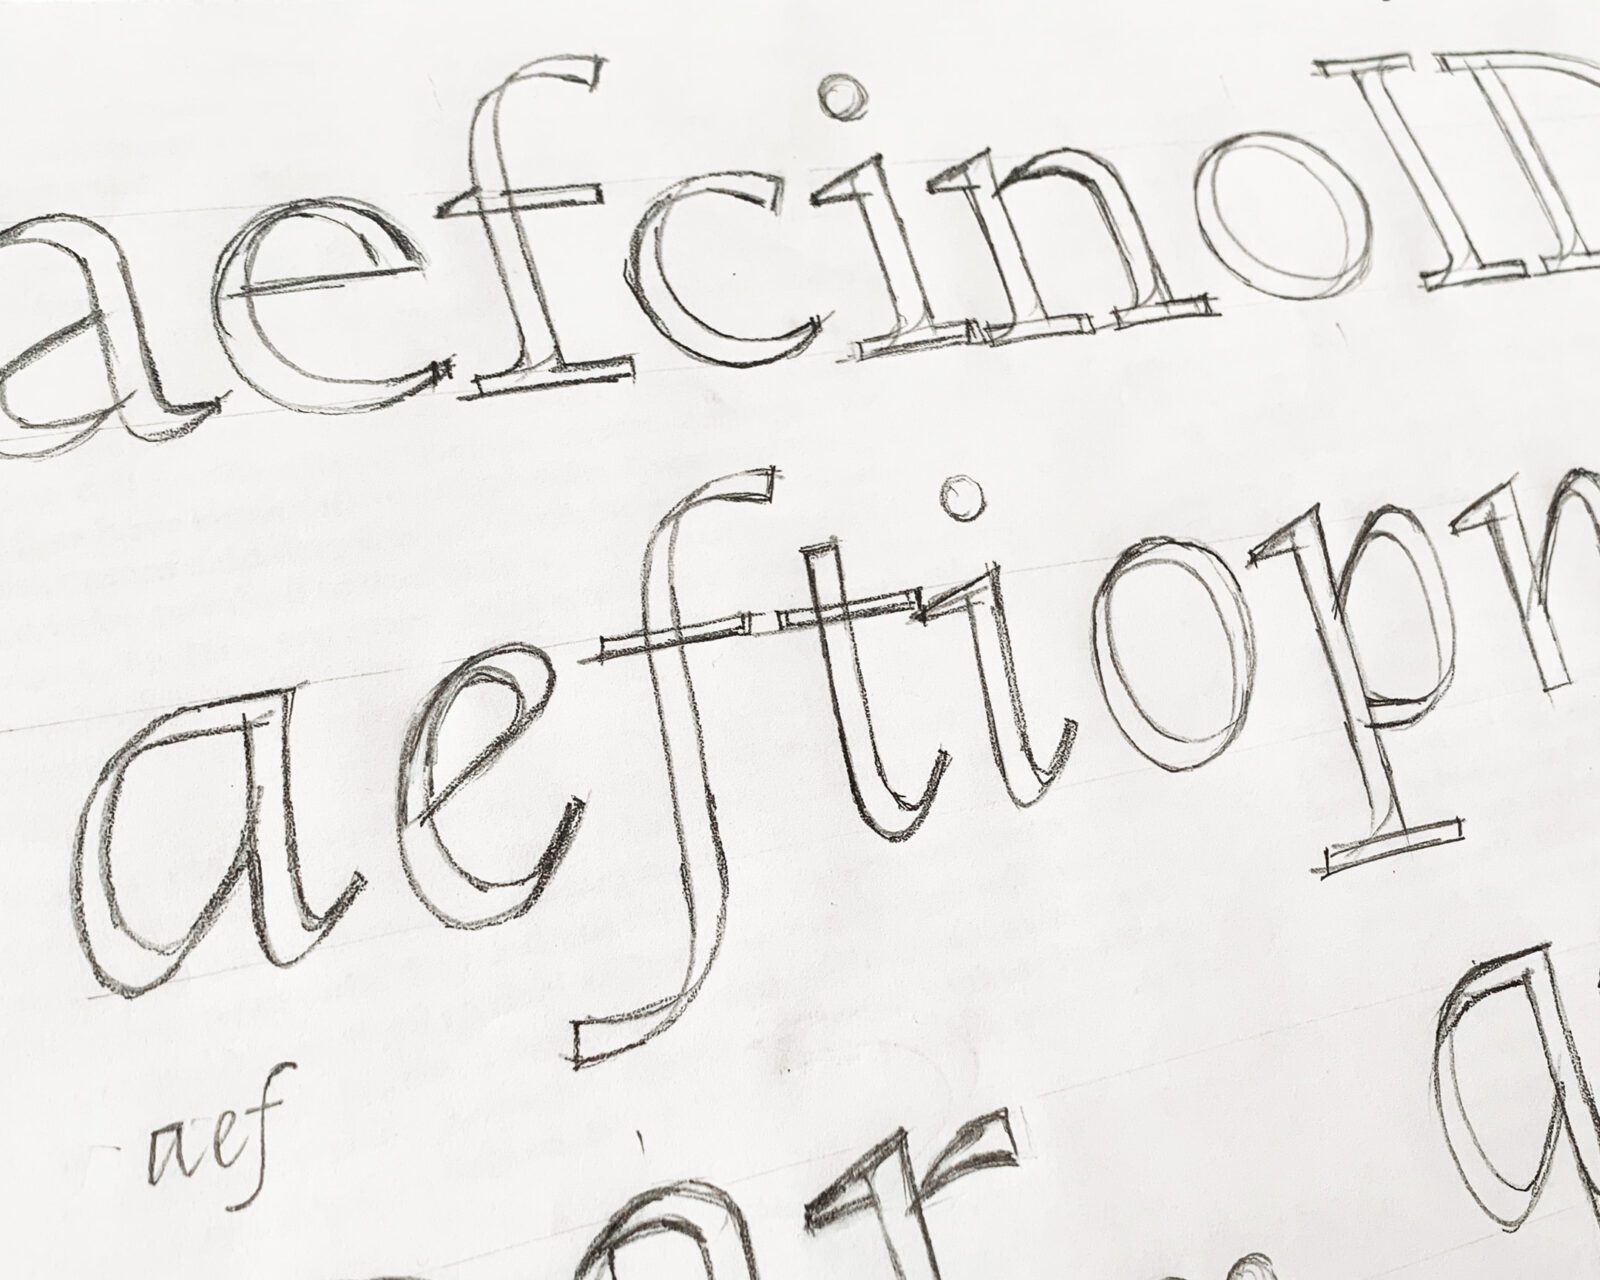 aefcinoID
aeftiopn
q
aef
r